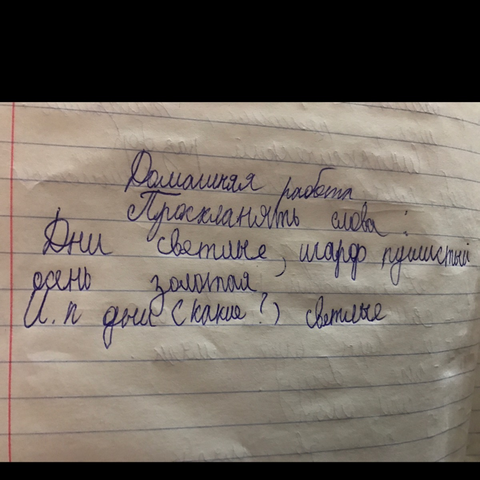 Домашняя работа
Просклонять слова:
Дни светлые, шарф пушистый
осень золотая
И.п дни (какие?) светлые